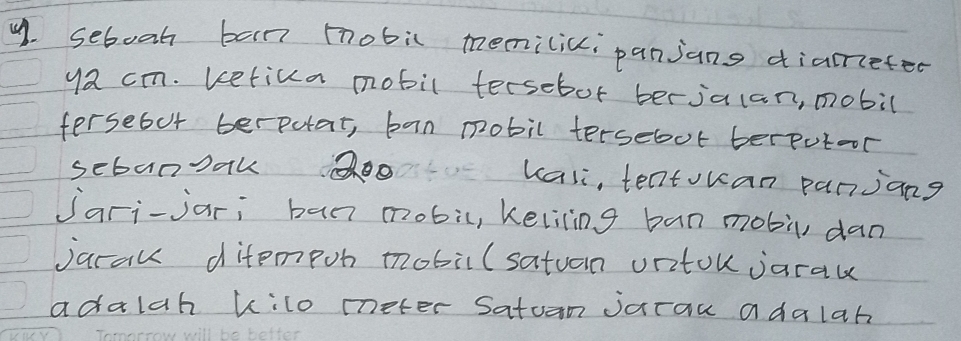 4. sebuah ban mobil memiliki panjang diameter
42 cm. ketika mobil tersebut berjalan, mobil
tersebut berputar, ban mobil tersebut berputar
sebanyak 200 kali, tentukan panjang
Jari-jari ban mobil, keliling ban mobil, dan
jarak ditempuh mobil (satuan untuk jarak
adalah kilo meter satuan jarak adalah
KIKY Tomorrow will be better